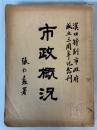 漢口特别市市政府
成立三周年紀念刊
市政概况
張仁蠡署